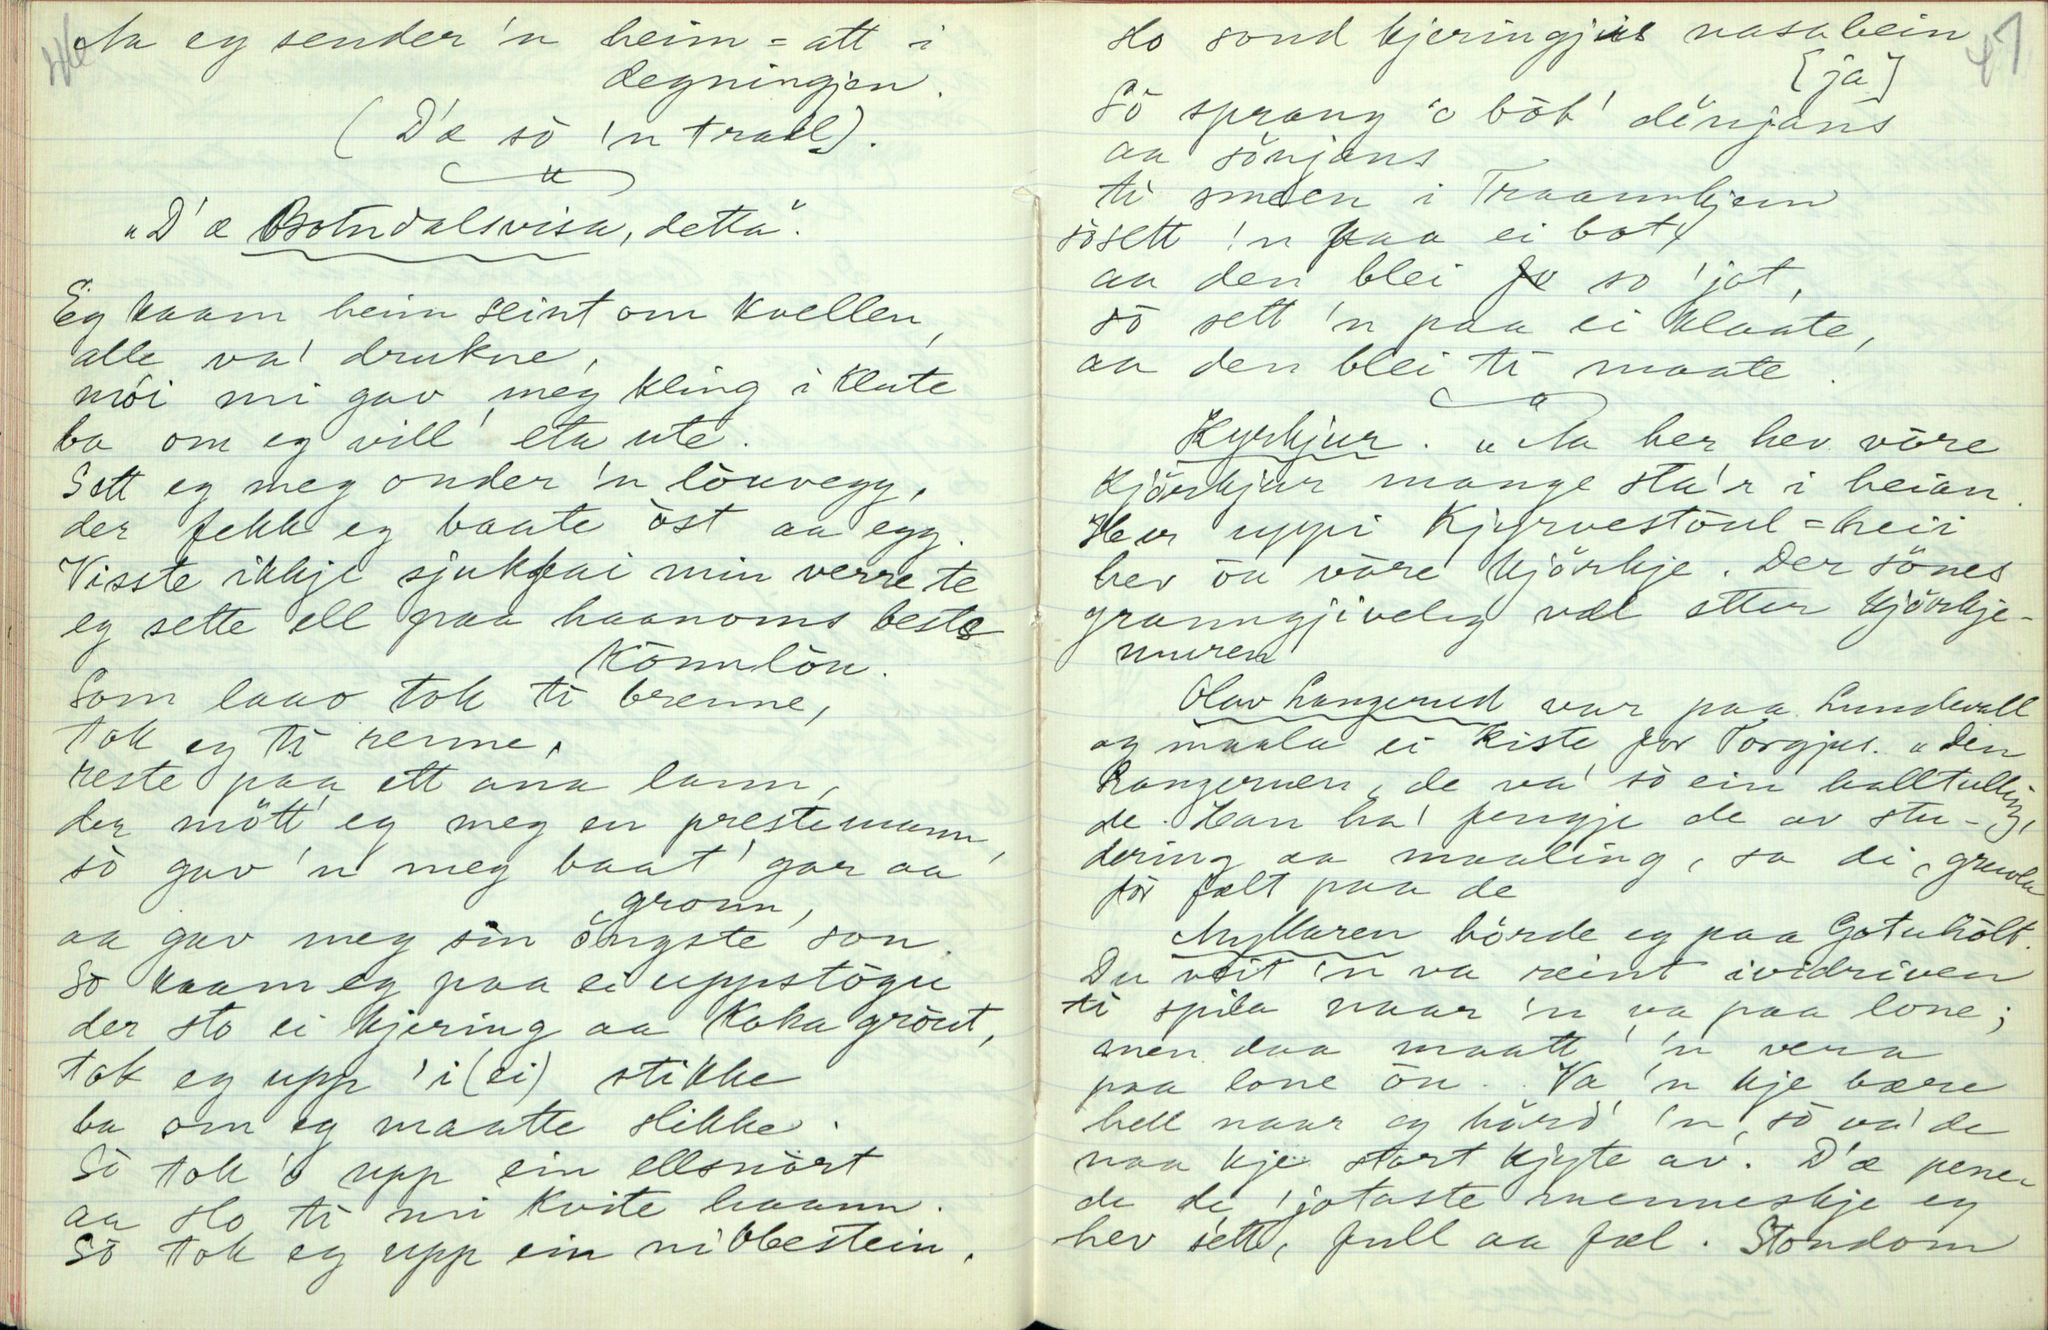 46
Aa eg sender 'n heim = att i
degningjen.
(D'æ so 'n trall).
"D'æ Botndalsvisa, detta".
Eg kaam heim seint om kvellen,
alle va' drukne,
mói mi gav meg kling i klute
ba om eg vill' eta ute.
Sett eg meg onder 'n lòuvegg,
der fekk eg baate òst aa egg.
Visste ikkje sjukfai min verre te
eg sette ell paa haanoms beste
Kònnlòu.
Som laao tok ti brenne,
tok eg ti renne,
reste paa ett ana lann,
der mött' eg meg en prestemann,
sò gav 'n meg baat' gar aa
gronn,
aa gav meg sin öngste son.
So kaam eg paa ei uppstògu
der sto ei kjering aa koka gròut,
tok eg upp 'i (ei) stikke
ba om eg maatte slikke.
Sò tok 'o upp ein ellsnòrt
aa slo ti mi kvite haann.
Sò tok eg upp ein nibbestein,
47
slo sond kjeringjis nasabein
[ja]
Sò sprang 'o bòt' dönjans
aa sönjans
ti smeen i Traannhjem
sò sett 'n paa ei bot,
aa den blei so 'jot,
sò sett 'n paa ei klaate,
aa den blei ti maate.
Kyrkjur. "Aa her hev vòre
kjörkjur mange sta'r i heian.
Her uppi Kjyrvestòul = heii
hev òu vòre kjörkje. Der sönes
granngjiveleg væl etter kjörkje-
muren
Olav Langerud var paa Lundevall
og maala ei kiste for Torgjus. "Den
Langeruen, de va' sò ein halltulling,
de. Han ha' fengje de av stu-
dering aa maaling, sa di, gruvla
for fælt paa de
Myllaren hörde eg paa Gotuhòlt.
Du veit 'n va reint ividriven
ti spila naar 'n va paa lone;
men daa maatt' 'n vera
paa lone òu. Va 'n kje bære
hell naar eg hörd' 'n, sò va' de
naa kje stort kjyte av. D'æ pene-
de de 'jotaste menneskje eg
hev sett, full aa fæl. Stondom